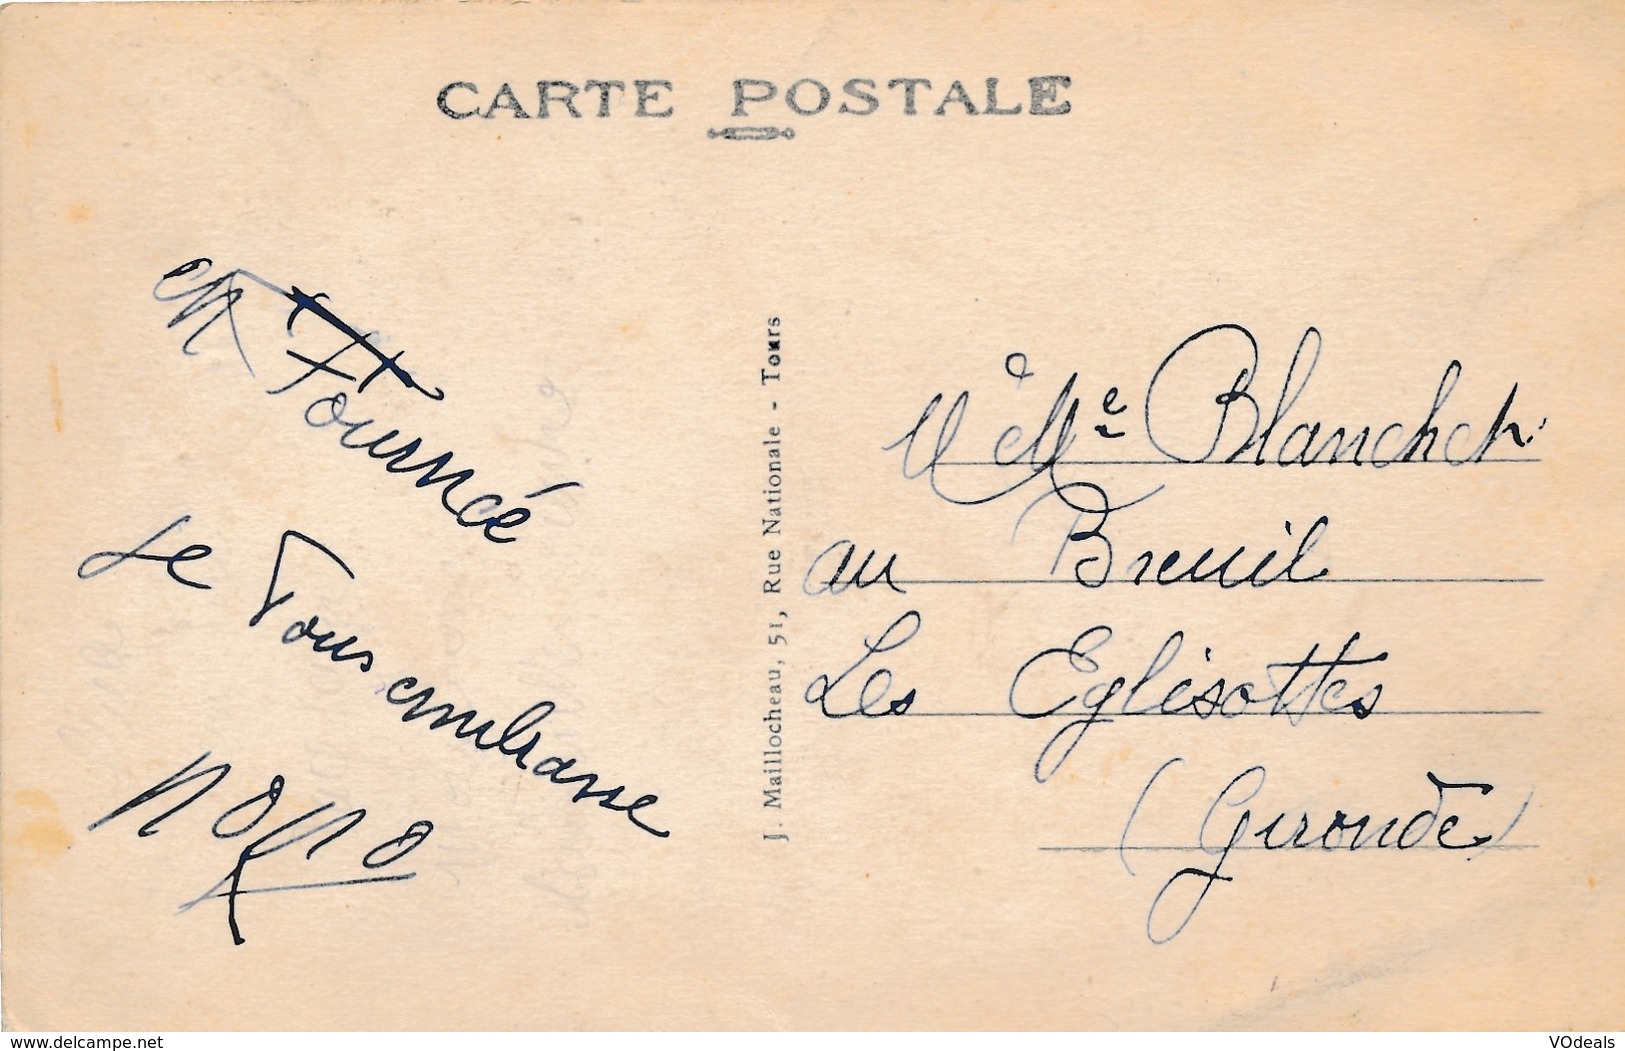 CARTE POSTALE
en Tournée
Je Vous embrasse
J. Maillocheau, 51, Rue Nationale - Tours
Mme Blanchet
au Breuil
Les Eglisottes
(Gironde)
www.delcampe.net
VOdeals